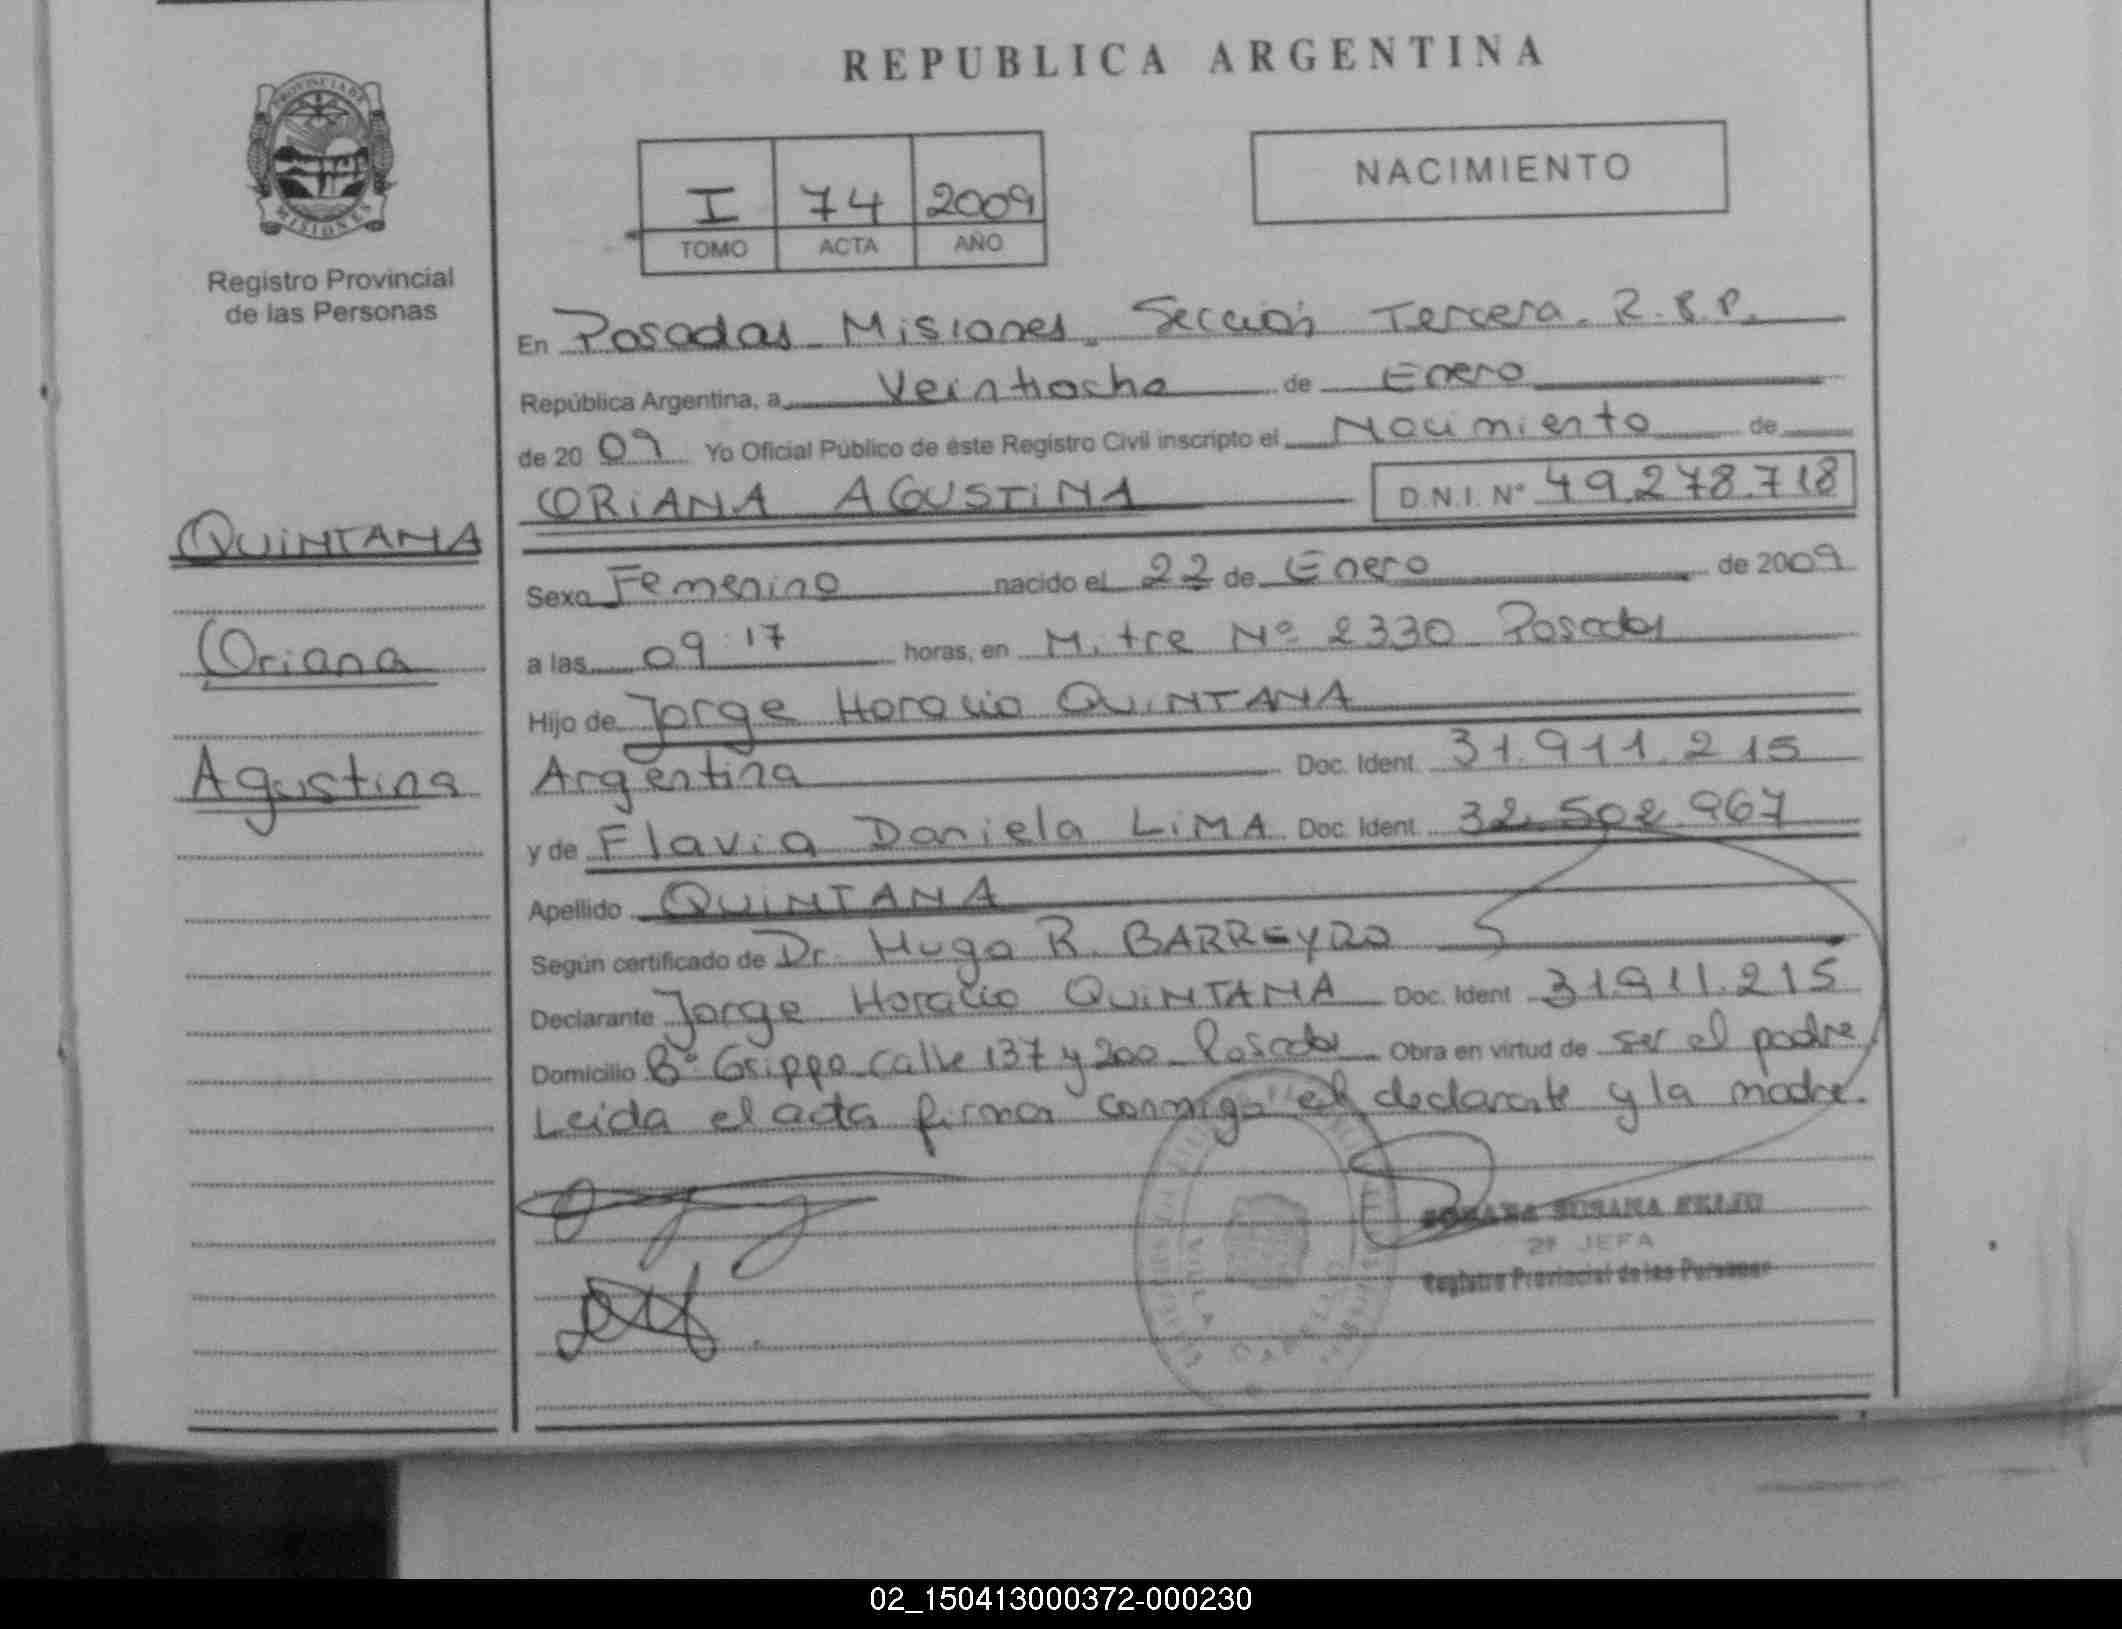 REPUBLICA ARGENTINA
PROVINCIA DE
MISIONES
Registro Provincial
de las Personas
I 74 2009
TOMO ACTA AÑO
NACIMIENTO
En Posadas Misiones. Sección Tercera.
República Argentina, a Veintiocho de Enero
de 2009 Yo Oficial Público de éste Registro Civil inscripto el Nacimiento de
ORIANA AGUSTINA D.N.I. Nº 49.278.718
QUINTANA
Oriana
Agustina
Sexo Femenino nacido el 22 de Enero de 2009
a las 09:17 horas, en Mitre Nº 2330 Posadas
Hijo de Jorge Horacio QUINTANA
Argentina Doc. Ident. 31.911.215
y de Flavia Daniela LiMA Doc. Ident. 32.502.967
Apellido QUINTANA
Según certificado de Dr. Hugo R. BARREYRO
Declarante Jorge Horacio QUINTANA Doc. Ident 31.911.215
Domicilio Bº Grippo calle 137 y 200 Posadas Obra en virtud de ser el padre
Leida el acta firman conmigo el declarante y la madre.
SUSANA
2ª JEFA
Registro Provincial de las Personas
02_150413000372-000230